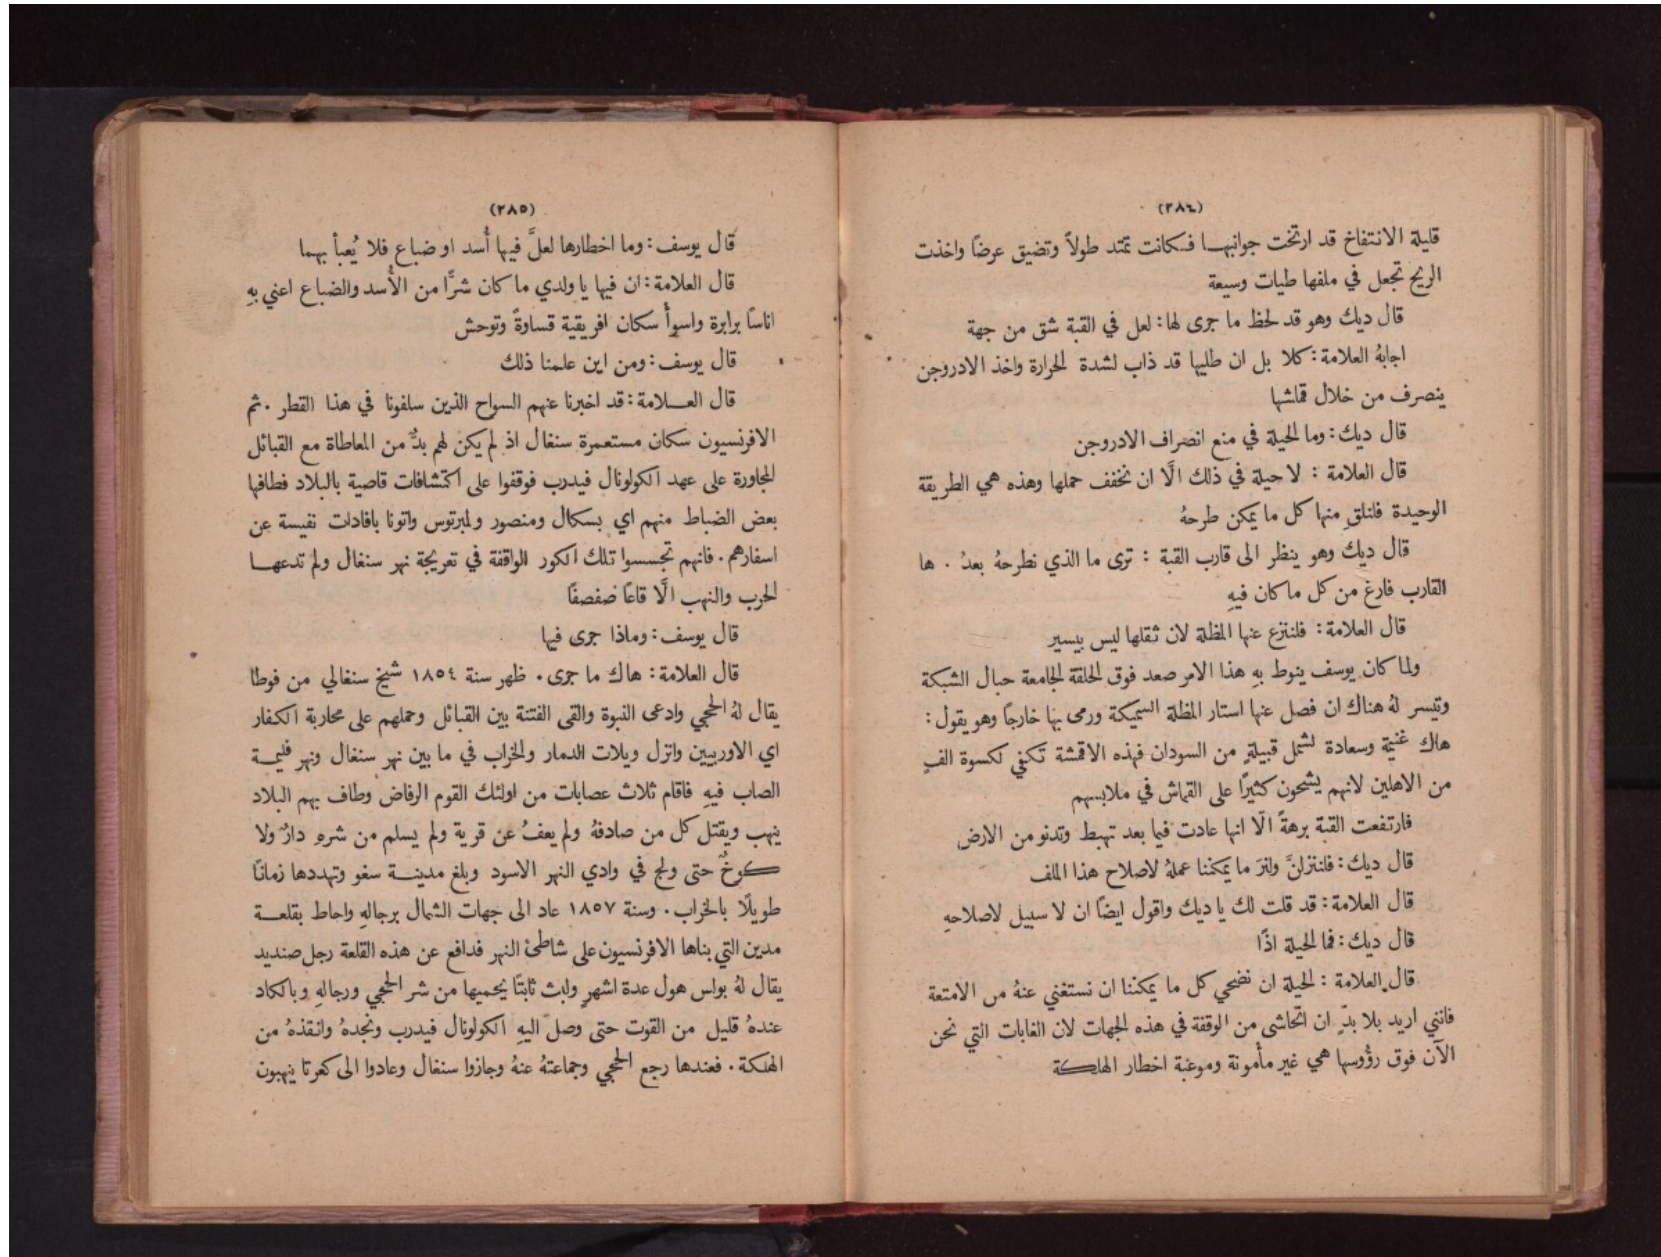 (٢٨٤)
قليلة الانتفاخ قد ارتخت جوانبهـا فـكانت تمتد طولاً وتضيق عرضًا واخذت
الريح تجعل في ملفها طيات وسيعة
قال ديك وهو قد لحظ ما جرى لها: لعل في القبة شق من جهة
اجابهُ العلامة: كلا بل ان طليها قد ذاب لشدة الحرارة واخذ الادروجن
ينصرف من خلال قماشها
قال ديك: وما الحيلة في منع انصراف الادروجن
قال العلامة : لا حيلة في ذلك الَّا ان نخفف حملها وهذه هي الطريقة
الوحيدة فلنلقِ منها كل ما يمكن طرحهُ
قال ديك وهو ينظر الى قارب القبة : ترى ما الذي نطرحهُ بعدُ . ها
القارب فارغ من كل ما كان فيهِ
قال العلامة: فلننزع عنها المظلة لان ثقلها ليس بيسير
ولما كان يوسف ينوط بهِ هذا الامر صعد فوق الحلقة الجامعة حبال الشبكة
وتيسر لهُ هناك ان فصل عنها استار المظلة السميكة ورمى بها خارجًا وهو يقول:
هاك غنيمة وسعادة لشمل قبيلةٍ من السودان فهذه الاقمشة تكفي لكسوة الفٍ
من الاهلين لانهم يشحون كثيرًا على القماش في ملابسهم
فارتفعت القبة برهةً الّا انها عادت فيما بعد تهبط وتدنو من الارض
قال ديك: فلننزلنَّ ولنرَ ما يمكننا عملهُ لاصلاح هذا الملف
قال العلامة: قد قلت لك يا ديك واقول ايضًا ان لا سبيل لاصلاحهِ
قال ديك: فما الحيلة اذًا
قال العلامة : الحيلة ان نضحي كل ما يمكننا ان نستغني عنهُ من الامتعة
فانني اريد بلا بدّ ان اتحاشى من الوقفة في هذه الجهات لان الغابات التي نحن
الآن فوق رؤوسها هي غير مأمونة وموعبة اخطار الهلكة
(٢٨٥)
قال يوسف: وما اخطارها لعلَّ فيها أُسد او ضباع فلا يُعبأ بهما
قال العلامة: ان فيها يا ولدي ما كان شرًّا من الأُسد والضباع اعني بهِ
اناسًا برابرة واسوأ سكان افريقية قساوةً وتوحش
قال يوسف: ومن اين علمنا ذلك
قال العـلامة: قد اخبرنا عنهم السواح الذين سلفونا في هذا القطر . ثم
الافرنسيون سكان مستعمرة سنغال اذ لم يكن لهم بدٌّ من المعاطاة مع القبائل
المجاورة على عهد الكولونال فيدرب فوقفوا على اكتشافات قاصية بالبلاد فطافها
بعض الضباط منهم اي بسكال ومنصور ولمبرتوس واتونا بافادات نفيسة عن
اسفارهم . فانهم تجسسوا تلك الكور الواقفة في تعريجة نهر سنغال ولم تدعهـا
الحرب والنهب الَّا قاعًا صفصفًا
قال يوسف: وماذا جرى فيها
قال العلامة: هاك ما جرى . ظهر سنة ١٨٥٤ شيخ سنغالي من فوطا
يقال لهُ الحجي وادعى النبوة والقى الفتنة بين القبائل وحملهم على محاربة الكفار
اي الاوربيين وانزل ويلات الدمار والخراب في ما بين نهر سنغال ونهر فليمـة
الصاب فيهِ فاقام ثلاث عصابات من اولئك القوم الرفاض وطاف بهم البلاد
ينهب ويقتل كل من صادفهُ ولم يعفُ عن قرية ولم يسلم من شرهِ دارٌ ولا
كوخٌ حتى ولج في وادي النهر الاسود وبلغ مدينـة سغو وتهددها زمانًا
طويلًا بالخراب . وسنة ١٨٥٧ عاد الى جهات الشمال برجالهِ واحاط بقلعـة
مدين التي بناها الافرنسيون على شاطئ النهر فدافع عن هذه القلعة رجل صنديد
يقال لهُ بولس هول عدة اشهرٍ ولبث ثابتًا يحميها من شر الحجي ورجالهِ وبالكاد
عندهُ قليل من القوت حتى وصل اليهِ الكولونال فيدرب ونجدهُ وانقذهُ من
الهلكة . فعندها رجع الحجي وجماعتهُ عنهُ وجازوا سنغال وعادوا الى كعرتا ينهبون